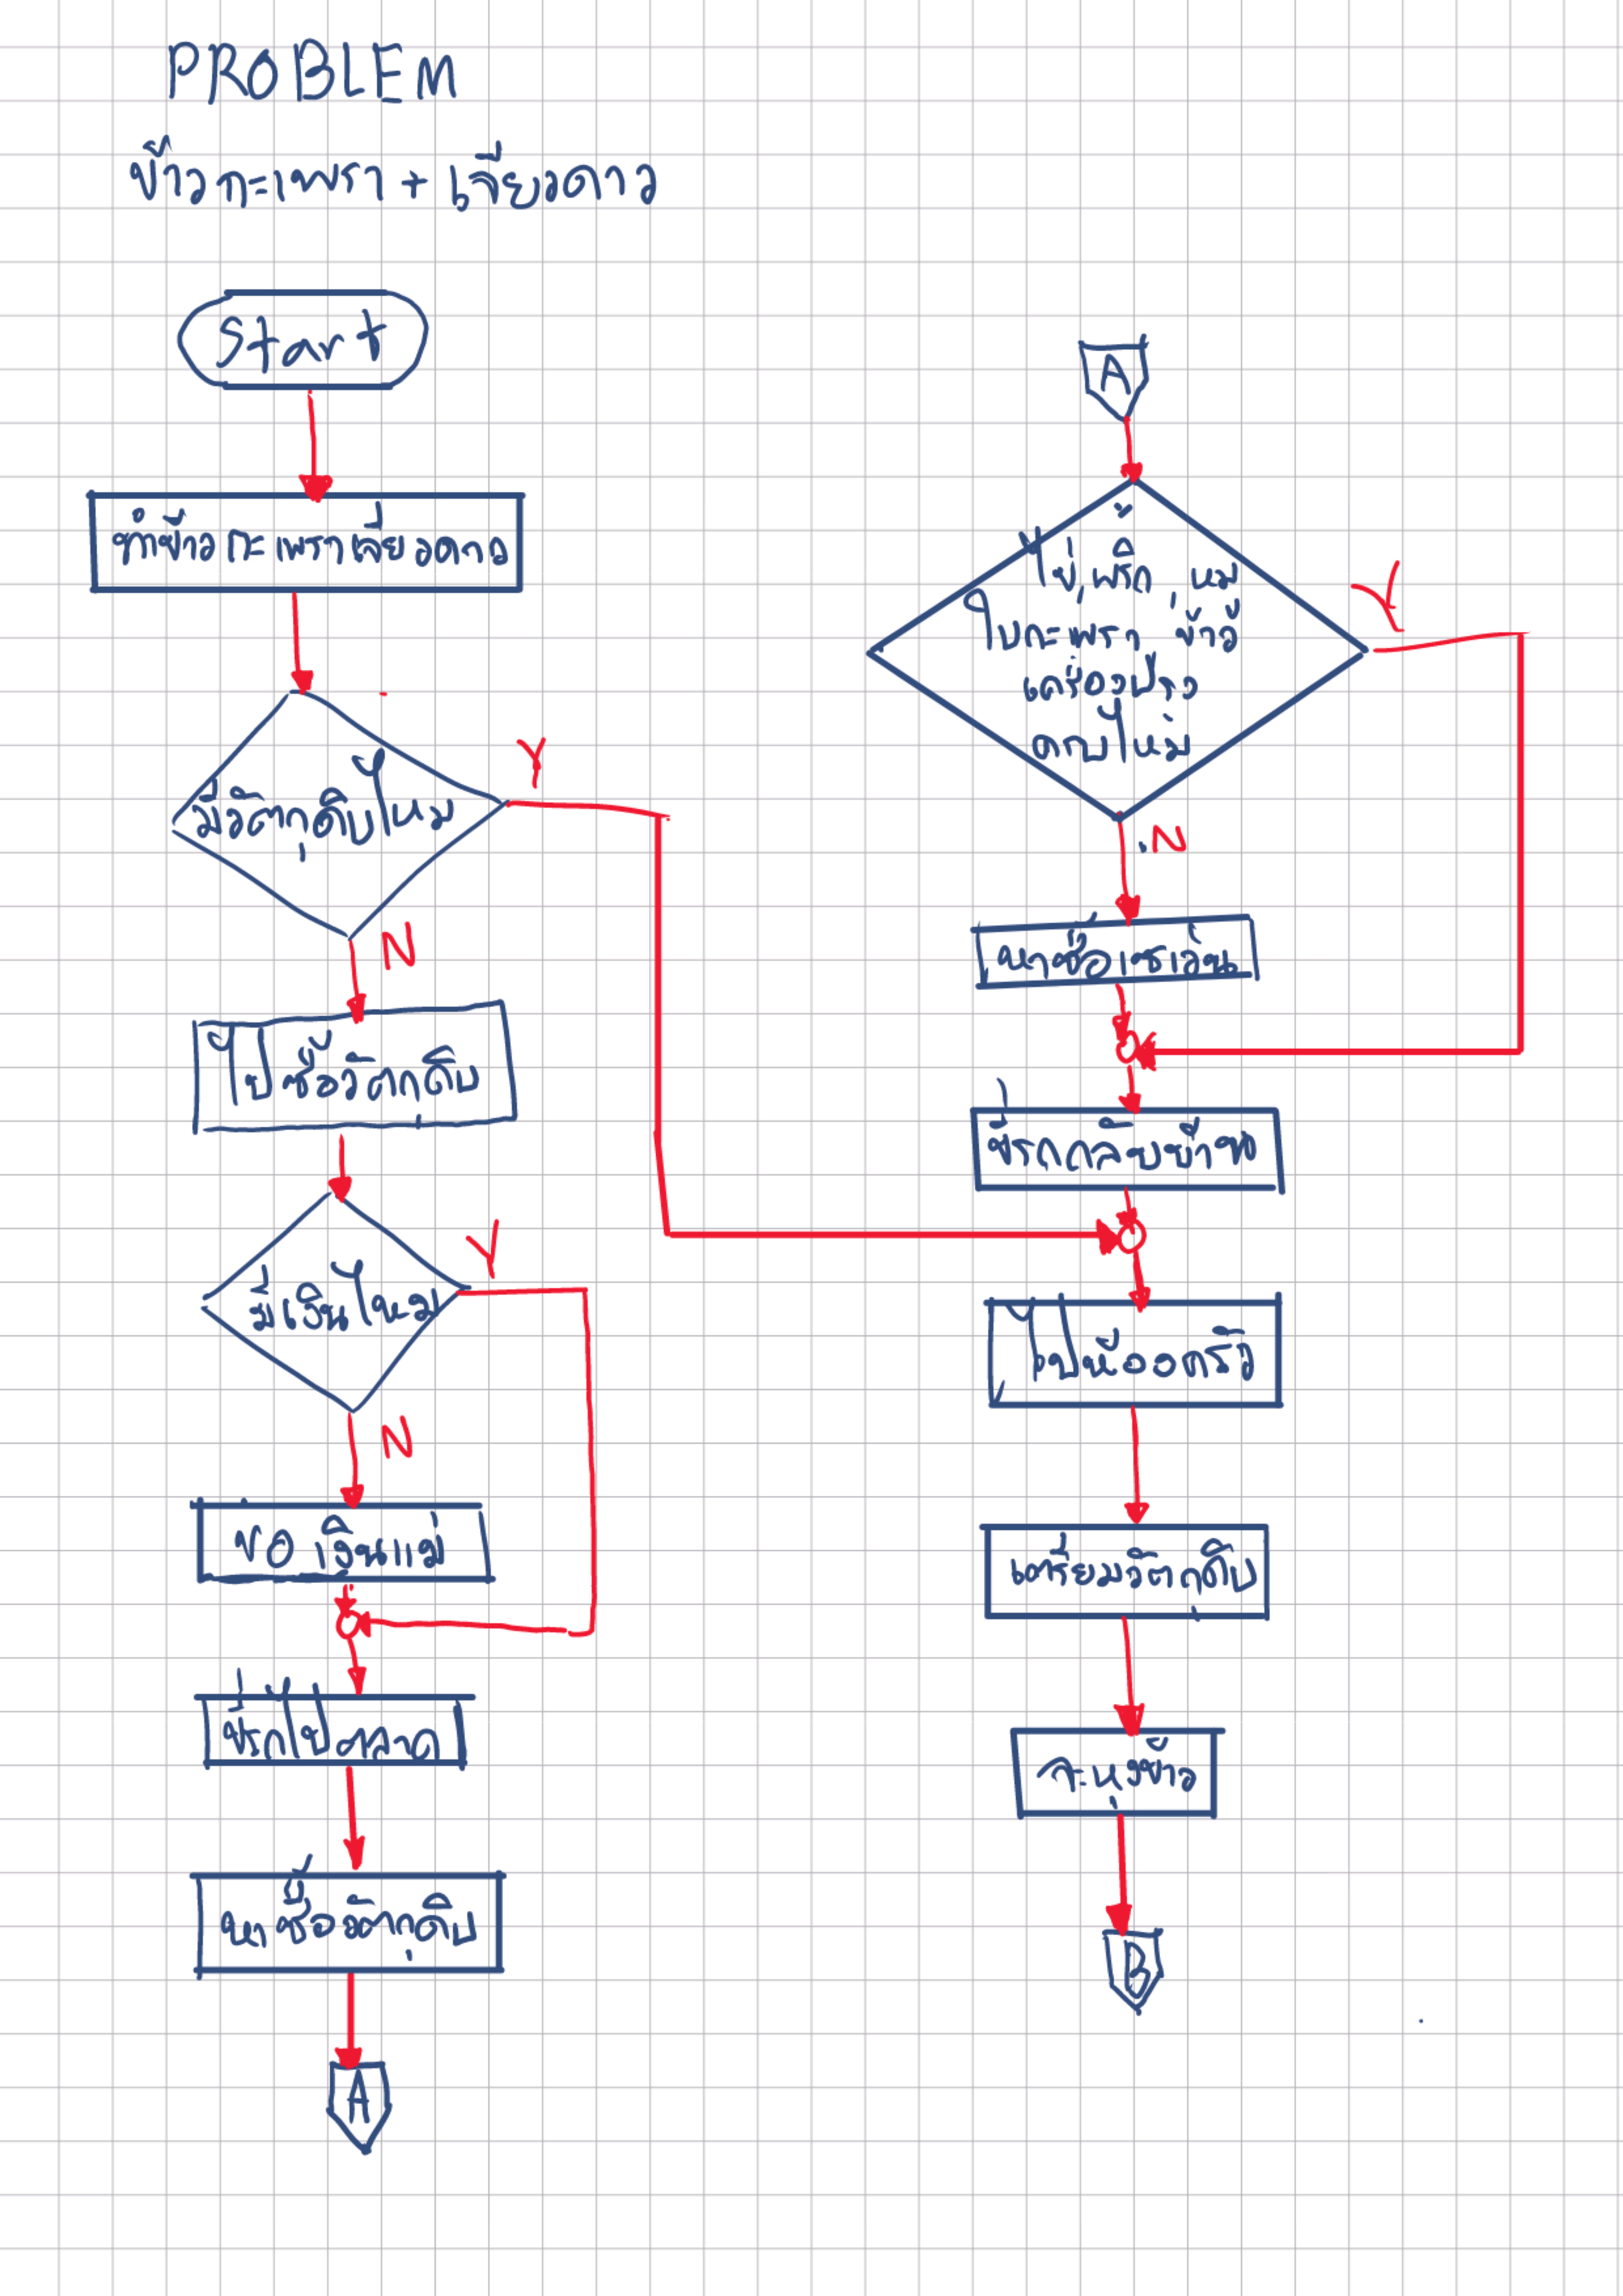 PROBLEM
ข้าวกะเพรา + เจียวดาว
Start
ทำข้าวกะเพราเจียวดาว
มีวัตถุดิบไหม
Y
N
ไปซื้อวัตถุดิบ
มีเงินไหม
Y
N
ขอเงินแม่
ขี่รถไปตลาด
หาซื้อวัตถุดิบ
A
A
ไข่,พริก,หมู
ใบกะเพรา ข้าว
เครื่องปรุง
ครบไหม
Y
N
หาซื้อเซเว่น
ขี่รถกลับบ้าน
ไปห้องครัว
เตรียมวัตถุดิบ
จะหุงข้าว
B